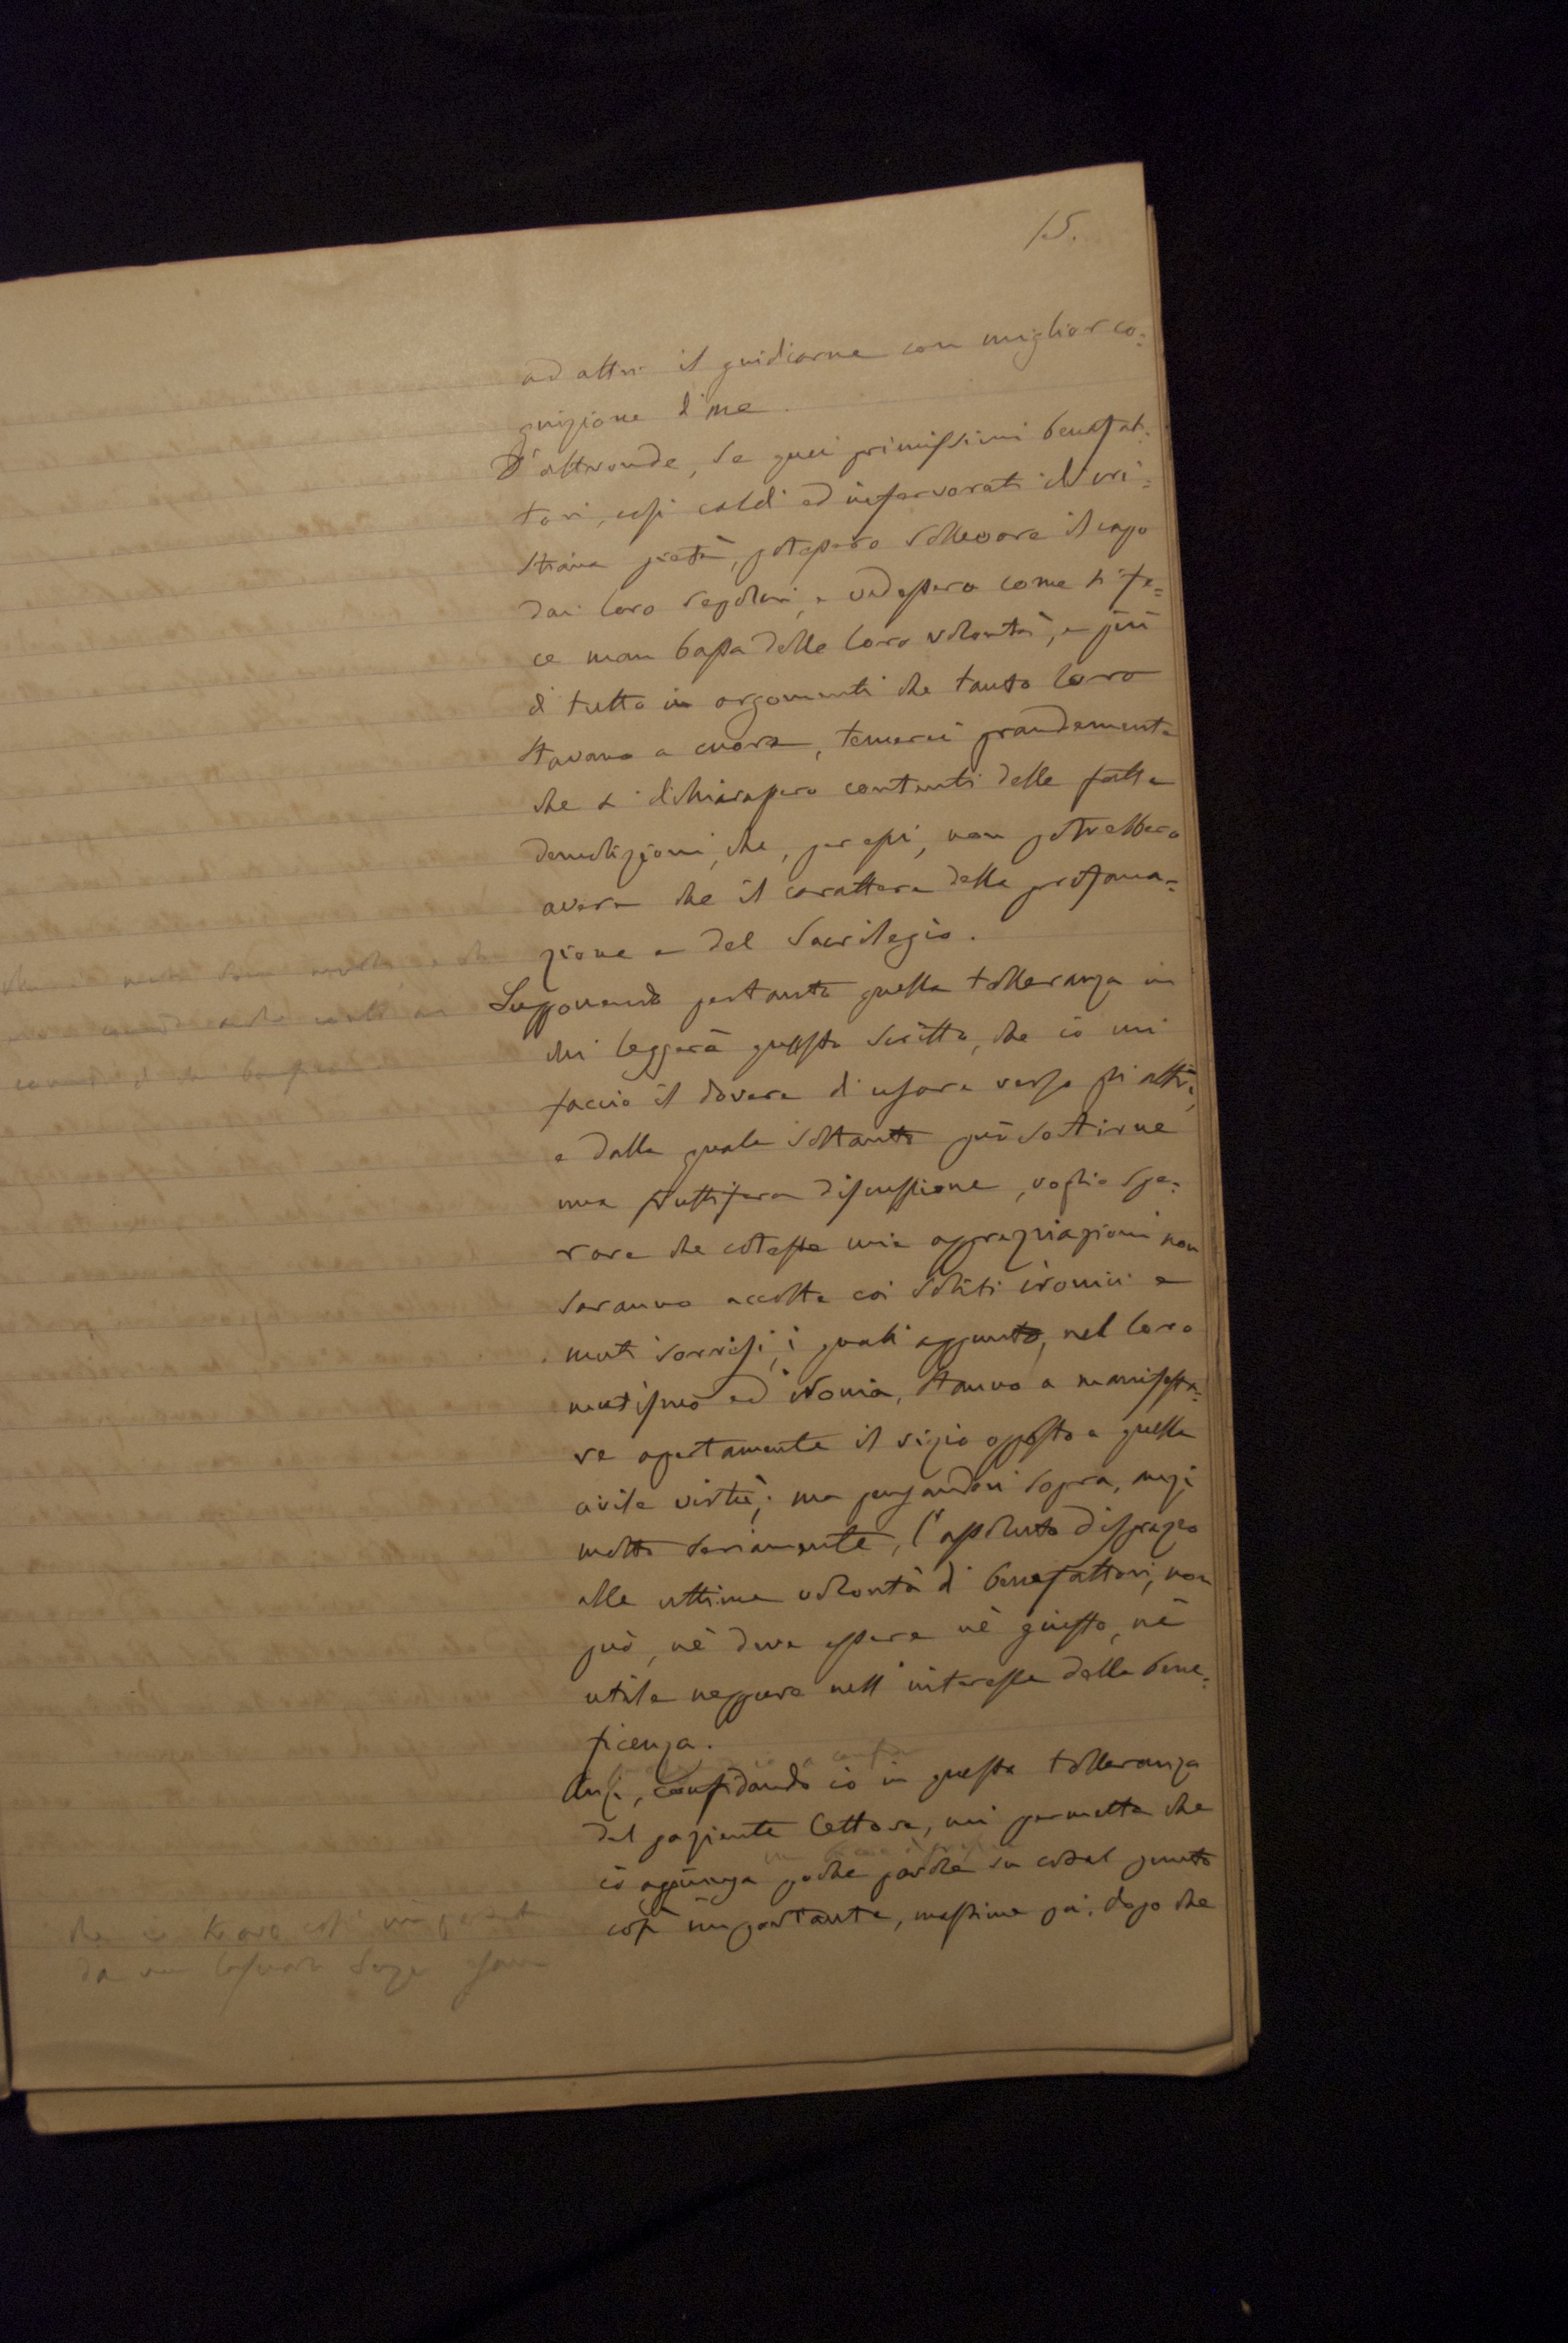 15.
ad altri il giudicarne con miglior co=
gnizione di me.
D'altronde, se quei primissimi benefat=
tori, così caldi ed infervorati di cri=
stiana pietà, potessero sollevare il capo
dai loro sepolcri, e vedessero come si fe=
ce man bassa delle loro volontà, e più
di tutto in argomenti che tanto loro
stavano a cuore, temerei grandemente
che si dichiarassero contenti delle fatte
demolizioni, che, per essi, non potrebbero
avere che il carattere della profana=
zione e del Sacrilegio.
Supponendo pertanto quella tolleranza in
chi leggerà questo scritto, che io mi
faccio il dovere di usare verso gli altri,
e dalla quale soltanto può sortirne
una fruttifera discussione, voglio spe=
rare che coteste mie apprezziazioni non
saranno accolte coi soliti ironici e
muti sorrisi, i quali appunto, nel loro
mutismo ed ironia, stanno a manifesta=
re apertamente il vizio opposto a quella
civile virtù; ma pensandoci sopra, anzi
molto seriamente, l'assoluto disprezzo
alle ultime volontà di benefattori, non
può, nè deve essere nè giusto, nè
utile neppure nell'interesse della bene=
ficenza.
Anzi, confidando io in questa tolleranza
del paziente lettore, mi permetta che
io aggiunga poche parole su cotal punto
così importante, massime poi, dopo che
che io trovo così importante
da non lasciarlo senza esame